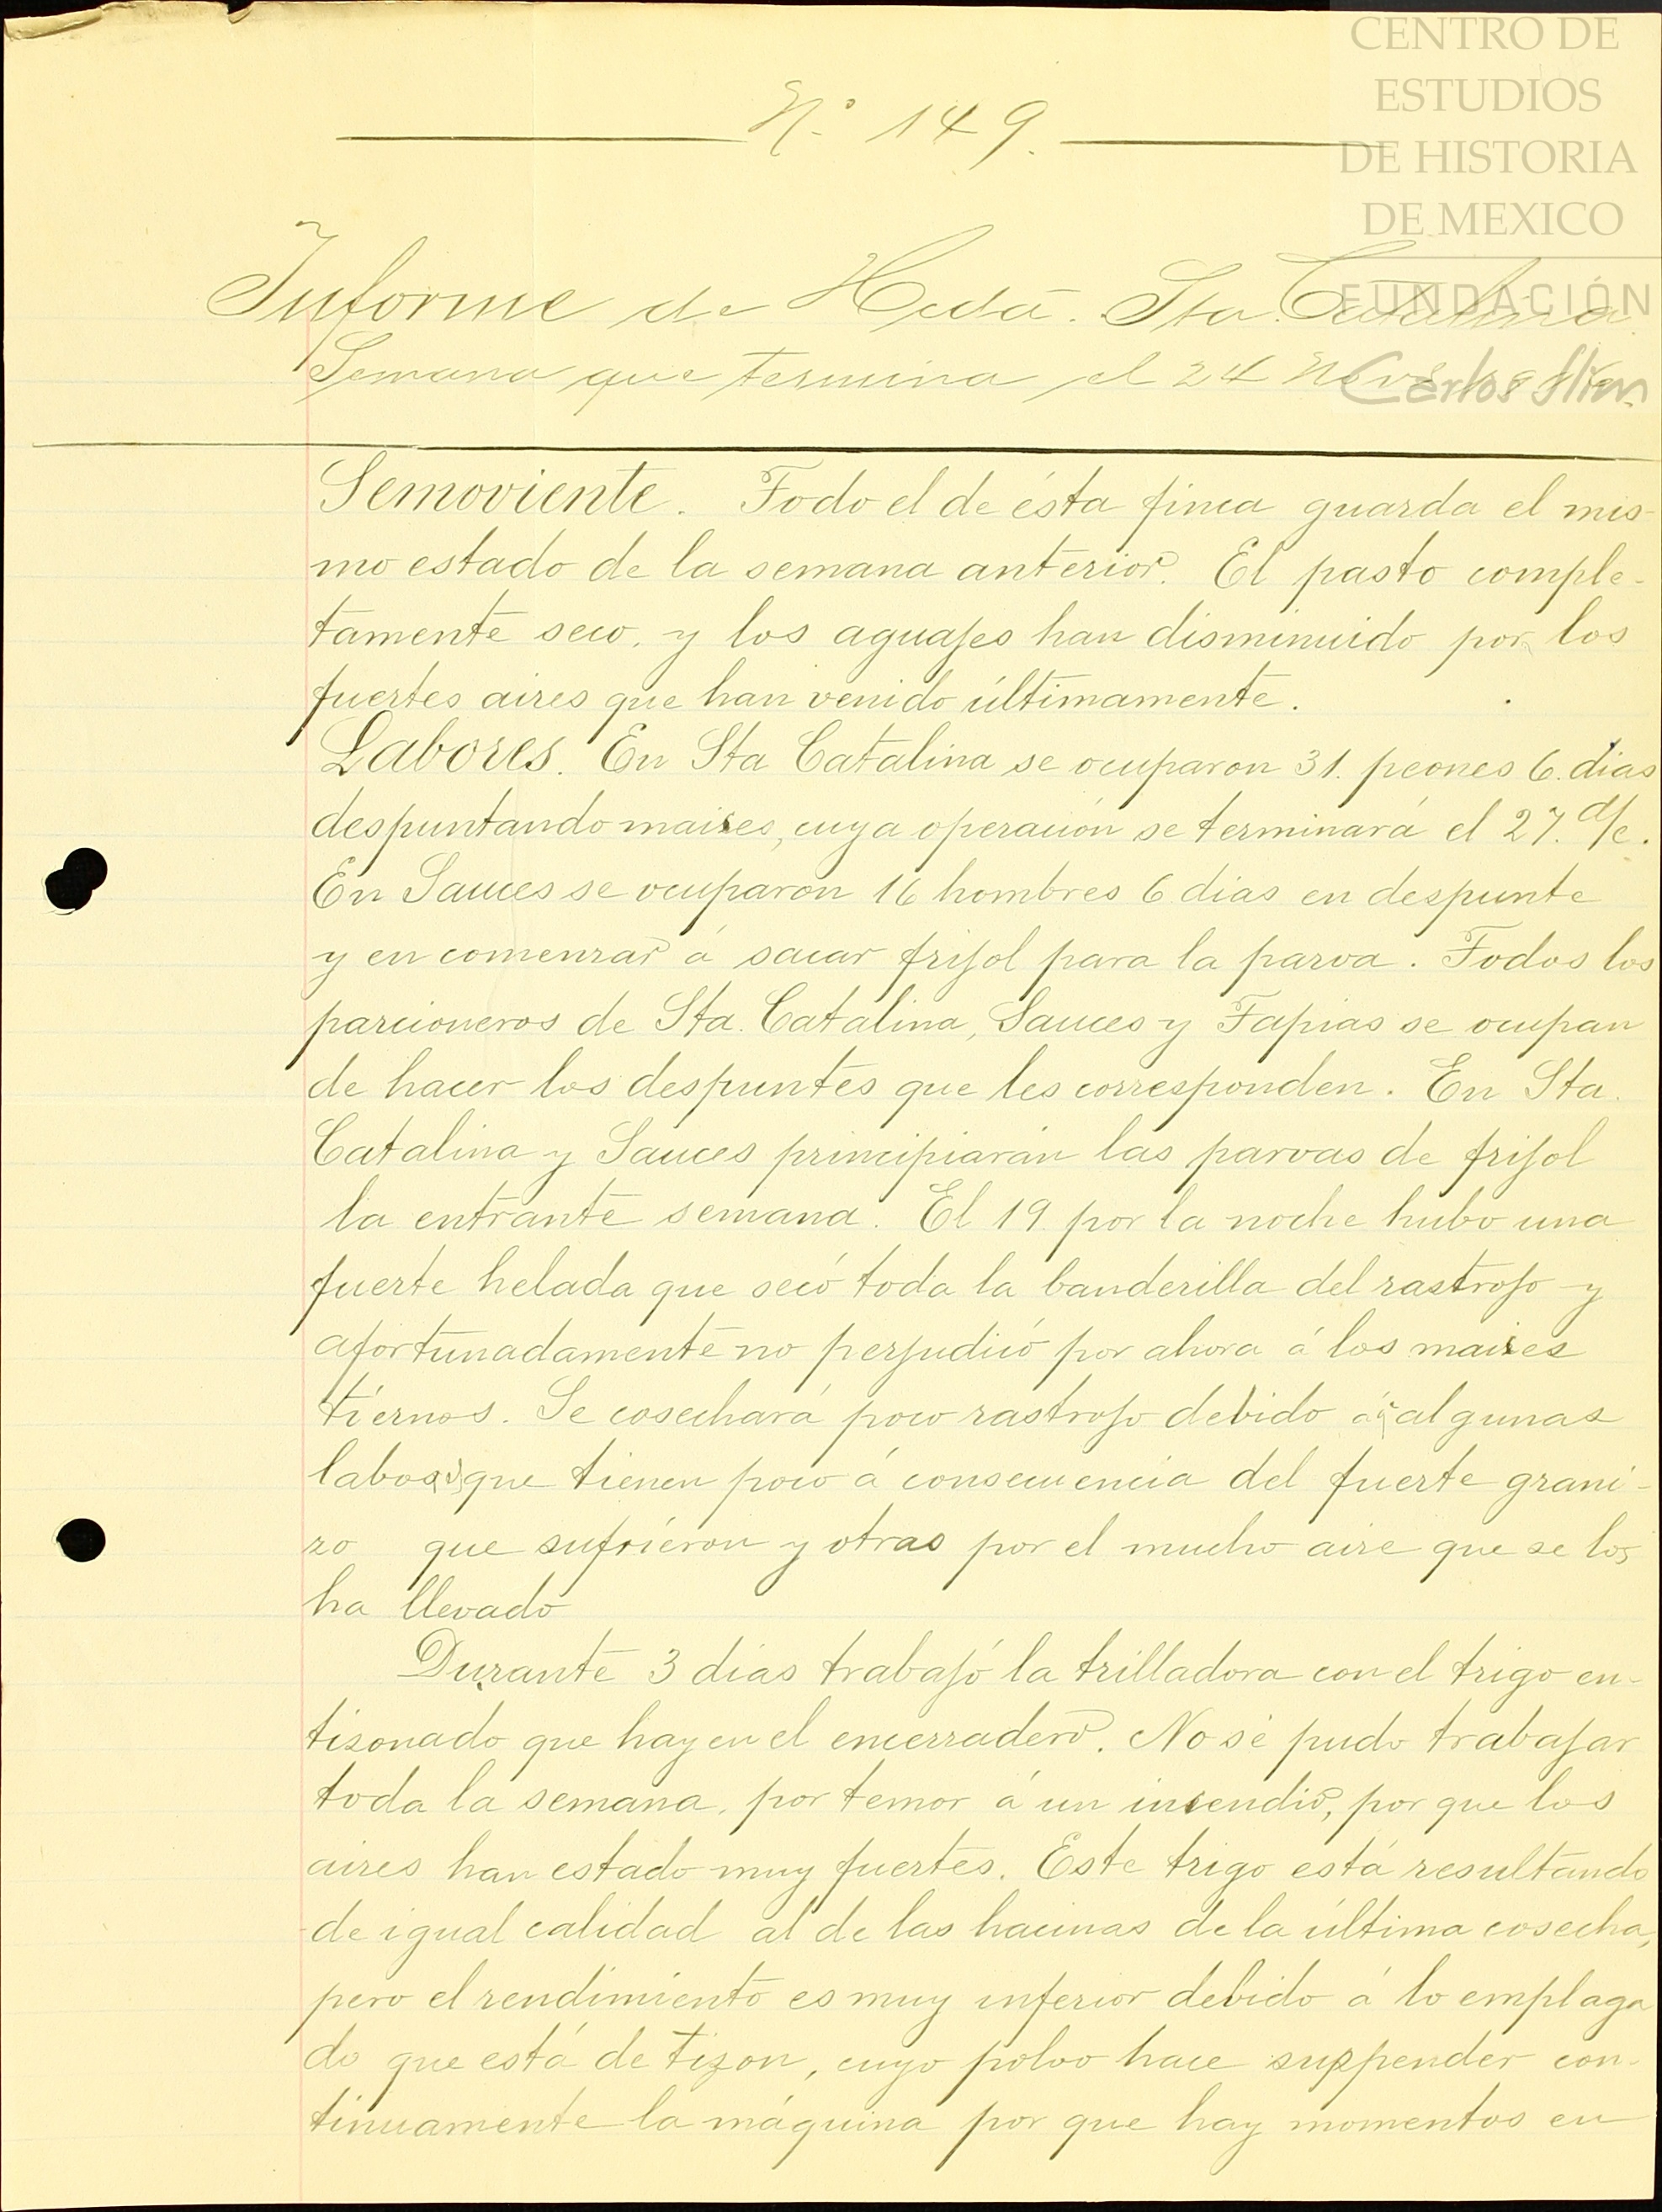 CENTRO DE
ESTUDIOS
DE HISTORIA
DE MEXICO
FUNDACIÓN
Carlos Slim
N.º 149.
Informe de Hcda. Sta. Catalina
Semana que termina el 24 Nov.
Semoviente. Todo el de ésta finca guarda el mis-
mo estado de la semana anterior. El pasto comple-
tamente seco, y los aguajes han disminuido por los
fuertes aires que han venido últimamente.
Labores. En Sta Catalina se ocuparon 31. peones 6. dias
despuntando maises, cuya operación se terminará el 27. d/c.
En Sauces se ocuparon 16 hombres 6 dias en despunte
y en comenzar á sacar frijol para la parva. Todos los
parcioneros de Sta. Catalina, Sauces y Tapias se ocupan
de hacer los despuntes que les corresponden. En Sta.
Catalina y Sauces principiarán las parvas de frijol
la entrante semana. El 19. por la noche hubo una
fuerte helada que secó toda la banderilla del rastrojo y
afortunadamente no perjudicó por ahora á los maises
tiernos. Se cosechará poco rastrojo debido á algunas
labores que tienen poco á consecuencia del fuerte grani-
zo que sufrieron y otras por el mucho aire que se los
ha llevado
Durante 3 dias trabajó la trilladora con el trigo en-
tizonado que hay en el encerradero. No sé pudo trabajar
toda la semana, por temor á un incendio, por que los
aires han estado muy fuertes. Este trigo está resultando
de igual calidad al de las hacinas de la última cosecha,
pero el rendimiento es muy inferior debido á lo emplaga
do que está de tizon, cuyo polvo hace suspender con-
tinuamente la máquina por que hay momentos en